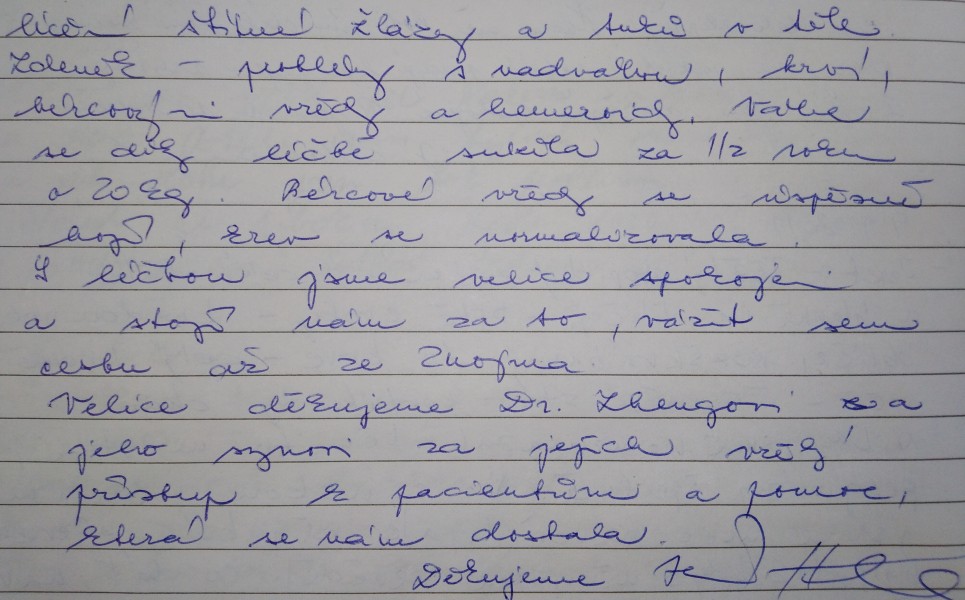 léčení štítné žlázy a tuků v těle.
Zdeněk - problémy s nadváhou, krví,
bércovými vředy a hemeroidy. Váha
se díky léčbě snížila za 1/2 roku
o 20 kg. Bércové vředy se úspěšně
hojí, krev se normalizovala.
S léčbou jsme velice spokojeni
a stojí nám za to, vážit sem
cestu až ze Znojma.
Velice děkujeme Dr. Zhengovi a
jeho synovi za jejich vřelý
přístup k pacientům a pomoc,
která se nám dostala.
Děkujeme